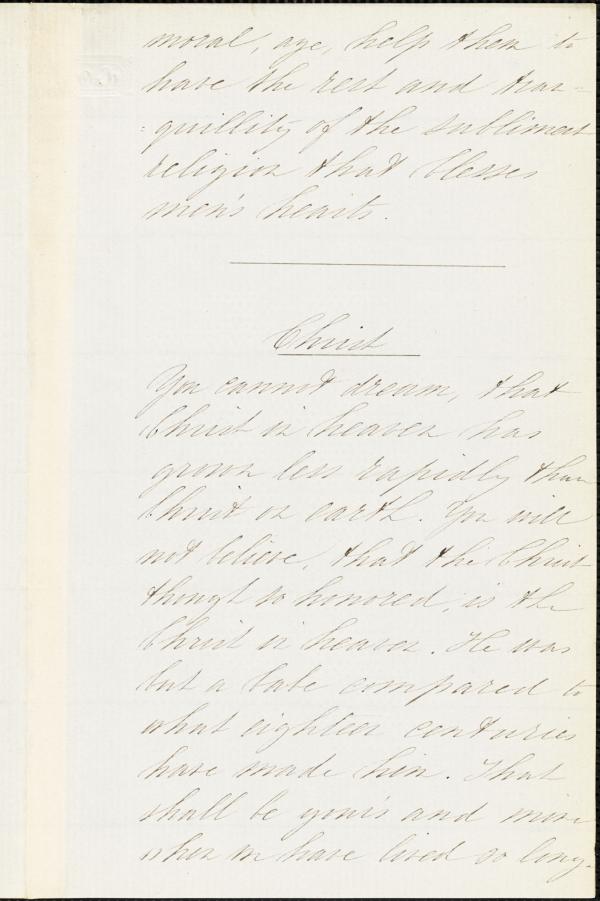 moral, age, help them to
have the rest and tran-
-quillity of the sublimest
religion that blesses
men's hearts.
Christ
You cannot dream, that
Christ in heaven has
grown less rapidly than
Christ on earth. You will
not believe, that the Christ
though so honored, is the
Christ in heaven. He was
but a babe compared to
what eighteen centuries
have made him. That
shall be your's and mine
when we have lived so long.